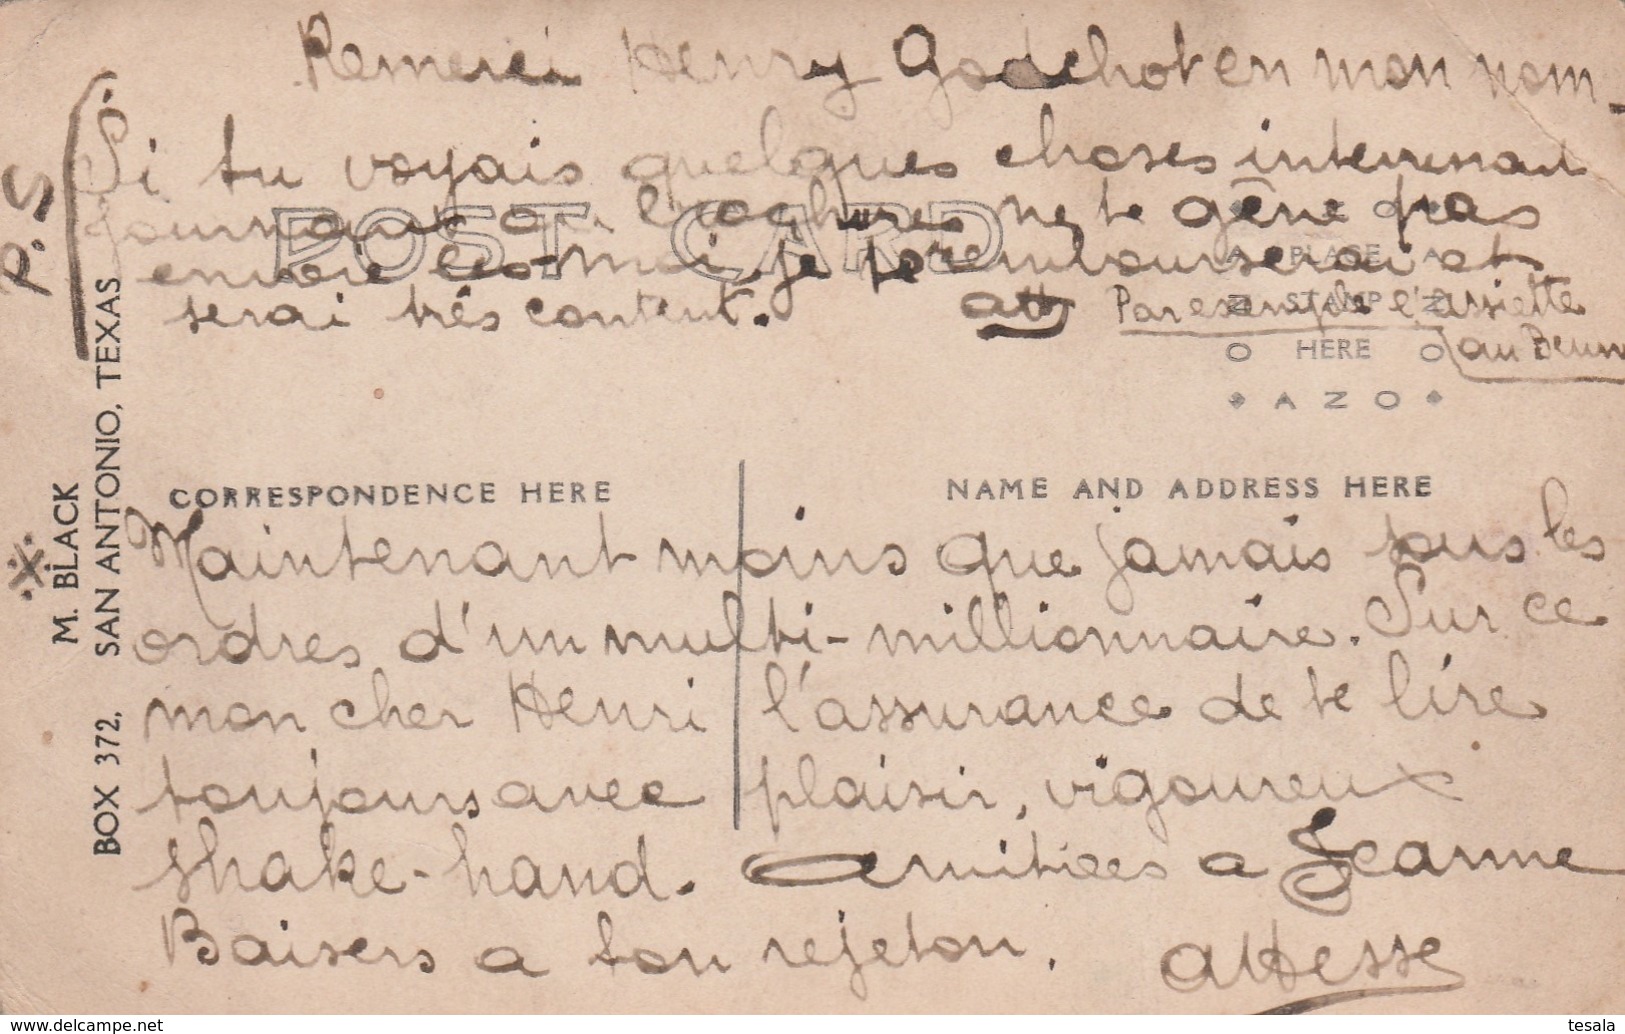 Remerci Henry Godchot en mon nom.
P.S
Si tu voyais quelques choses interressant
journaux ou brochures ne te gêne pas
envoie les-moi, je te rembourserai et
serai très content.
Par exemple l'assiette
au Beurre
POST CARD
PLACE
STAMP
HERE
AZO
M. BLACK
BOX 372, SAN ANTONIO, TEXAS
CORRESPONDENCE HERE
NAME AND ADDRESS HERE
Maintenant moins que jamais sous les
ordres d'un multi-millionnaire. Sur ce
mon cher Henri l'assurance de te lire
toujours avec plaisir, vigoureux
shake-hand. Amitiées a Jeanne
Baisers a ton rejeton.
tesala
www.delcampe.net